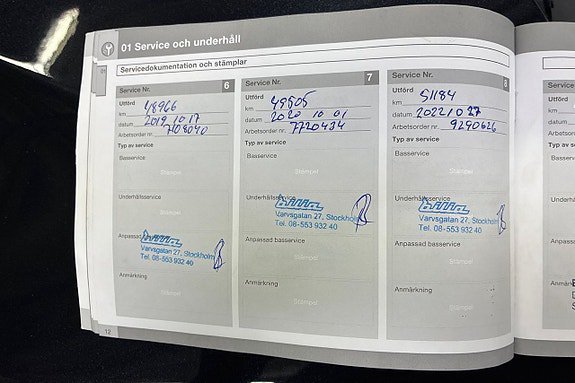 01 Service och underhåll
Servicedokumentation och stämplar
Service Nr. 6
Utförd
km 48966
datum 2019 10 17
Arbetsorder nr. 7108040
Typ av service
Basservice
Stämpel
Underhållsservice
Stämpel
Anpassad
Varvsgatan 27, Stockholm
Tel. 08-553 932 40
Anmärkning
Stämpel
12
Service Nr. 7
Utförd
km 49505
datum 2020 10 01
Arbetsorder nr. 7720434
Typ av service
Basservice
Stämpel
Underhållsservice
Varvsgatan 27, Stockholm
Tel. 08-553 932 40
Anpassad basservice
Stämpel
Anmärkning
Stämpel
Service Nr. 8
Utförd
km 51184
datum 2022 10 27
Arbetsorder nr. 9290626
Typ av service
Basservice
Stämpel
Underhållsservice
Varvsgatan 27, Stockholm
Tel. 08-553 932 40
Anpassad basservice
Stämpel
Anmärkning
Stämpel